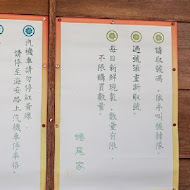 請取號碼,依序叫號排隊。
過號請重新取號。
每日新鮮現製,數量有限
不限購買數量。
汽機車請勿停紅黃線
請停至海安路上汽機車停車格